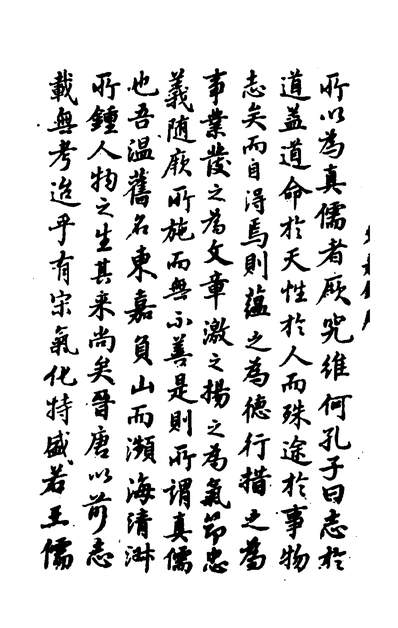 所以為真儒者厥究維何孔子曰志於
道蓋道命於天性於人而殊途於事物
志矣而自得焉則蘊之為德行措之為
事業發之為文章激之揚之為氣節忠
義随厥所施而無不善是則所謂真儒
也吾温舊名東嘉負山而瀕海清淑
所鍾人物之生其来尚矣晉唐以前志
載無考迨乎有宋氣化特盛若王儒